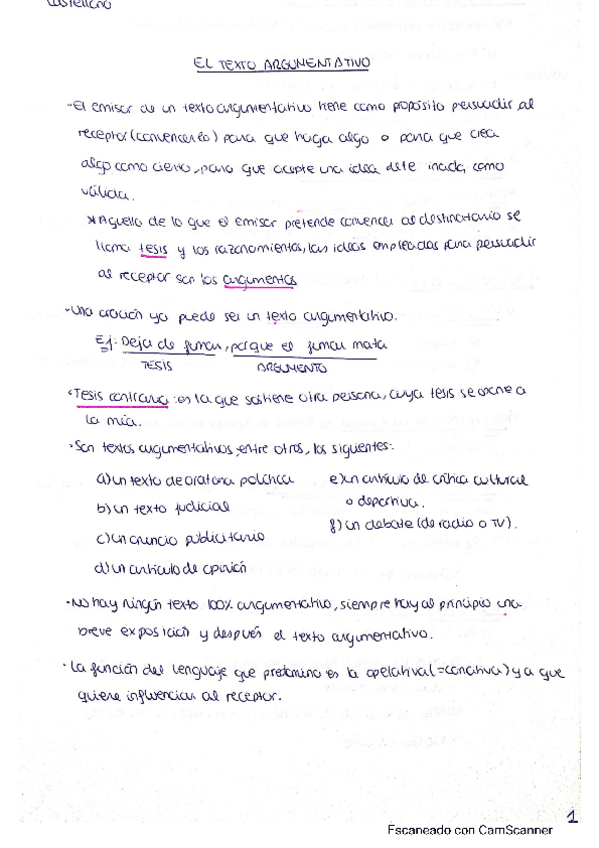 Castellano
EL TEXTO ARGUMENTATIVO
-El emisor de un texto argumentativo tiene como propósito persuadir al
receptor (convencerlo) para que haga algo o para que crea
algo como cierto, para que acepte una idea dete inada, como
válida.
*Aquello de lo que el emisor pretende convencer al destinatario se
llama tesis y los razonamientos, las ideas empleadas para persuadir
al receptor son los argumentos
-Una oración ya puede ser un texto argumentativo.
Ej: Deja de fumar, porque el fumar mata
TESIS ARGUMENTO
·Tesis contraria: es la que sostiene otra persona, cuya tesis se opone a
la mía.
·Son textos argumentativos, entre otros, los siguientes:
a) un texto de oratoria política
b) un texto judicial
c) un anuncio publicitario
d) un artículo de opinión
e) un artículo de crítica cultural
o deportiva.
f) un debate (de radio o TV).
·No hay ningún texto 100% argumentativo, siempre hay al principio una
breve exposición y después el texto argumentativo.
·La función del lenguaje que predomina es la apelativa (=conativa) ya que
quiere influenciar al receptor.
1
Escaneado con CamScanner